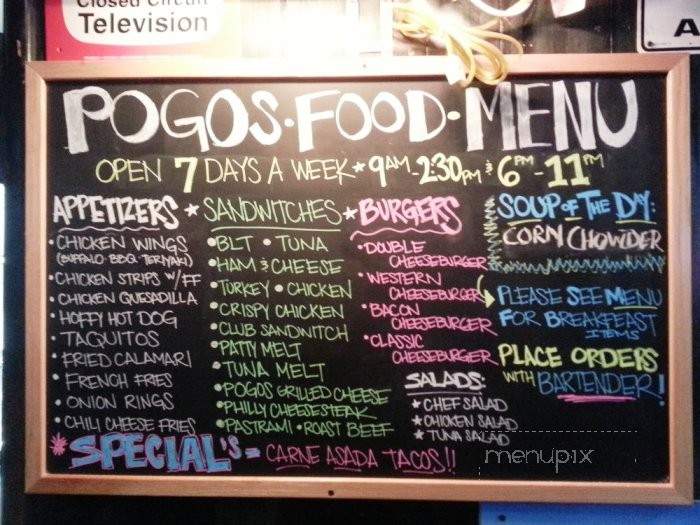 Closed Circuit
Television
A
POGOS·FOOD·MENU
OPEN 7 DAYS A WEEK * 9AM-2:30PM & 6PM-11PM
APPETIZERS * SANDWITCHES * BURGERS
• CHICKEN WINGS
(BUFFALO·BBQ·TERIYAKI)
• CHICKEN STRIPS W/FF
• CHICKEN QUESADILLA
• HOFFY HOT DOG
• TAQUITOS
• FRIED CALAMARI
• FRENCH FRIES
• ONION RINGS
• CHILI CHEESE FRIES
• BLT • TUNA
• HAM & CHEESE
TURKEY • CHICKEN
• CRISPY CHICKEN
• CLUB SANDWITCH
• PATTY MELT
• TUNA MELT
• POGOS GRILLED CHEESE
• PHILLY CHEESESTEAK
• PASTRAMI • ROAST BEEF
• DOUBLE
CHEESEBURGER
• WESTERN
CHEESEBURGER
• BACON
CHEESEBURGER
• CLASSIC
CHEESEBURGER
SALADS:
* CHEF SALAD
* CHICKEN SALAD
* TUNA SALAD
SOUP OF THE DAY:
CORN CHOWDER
PLEASE SEE MENU
FOR BREAKFEAST
ITEMS
PLACE ORDERS
WITH BARTENDER!
* SPECIAL'S = CARNE ASADA TACOS!!
menupix